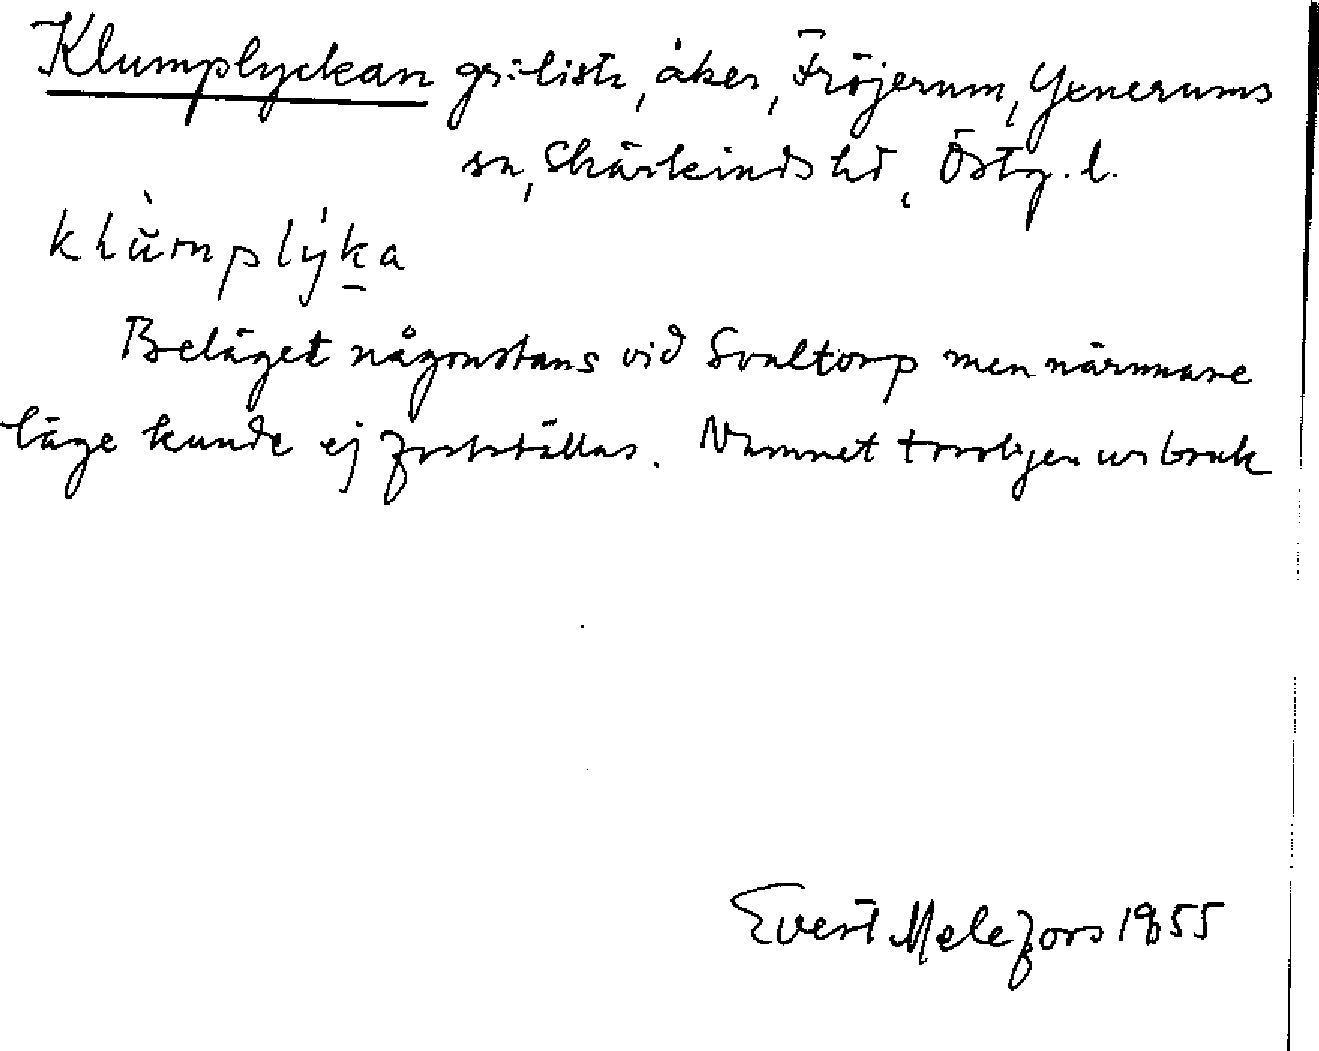 Klumplyckan gsiliste, åker, Fröjerum, Yxnerums
sn, Skärkinds hd, Östg. l.
klùmplýḵa
Beläget någonstans vid Svaltorp men närmare
läge kunde ej fastställas. Namnet troligen ur bruk
Evert Melefors 1955